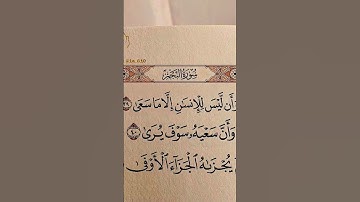 سُورَةُ النَّجْمِ
وَأَن لَّيْسَ لِلْإِنسَٰنِ إِلَّا مَا سَعَىٰ ٣٩
وَأَنَّ سَعْيَهُۥ سَوْفَ يُرَىٰ ٤٠
يُجْزَىٰهُ الْجَزَآءَ الْأَوْفَىٰ